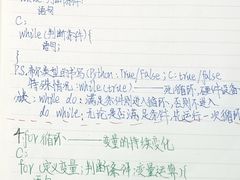 语句
C:
while(判断条件){
语句;
}
P.S.布尔类型的书写(Python:True/False;C:true/false
特殊情况:while(true)——死循环,硬件设备
while do:满足条件则进入循环,否则不进入
do while,无论是否满足条件,先运行一次循环
4.for循环——变量的持续变化
C:
for(定义变量;判断条件;变量运算){
语句;